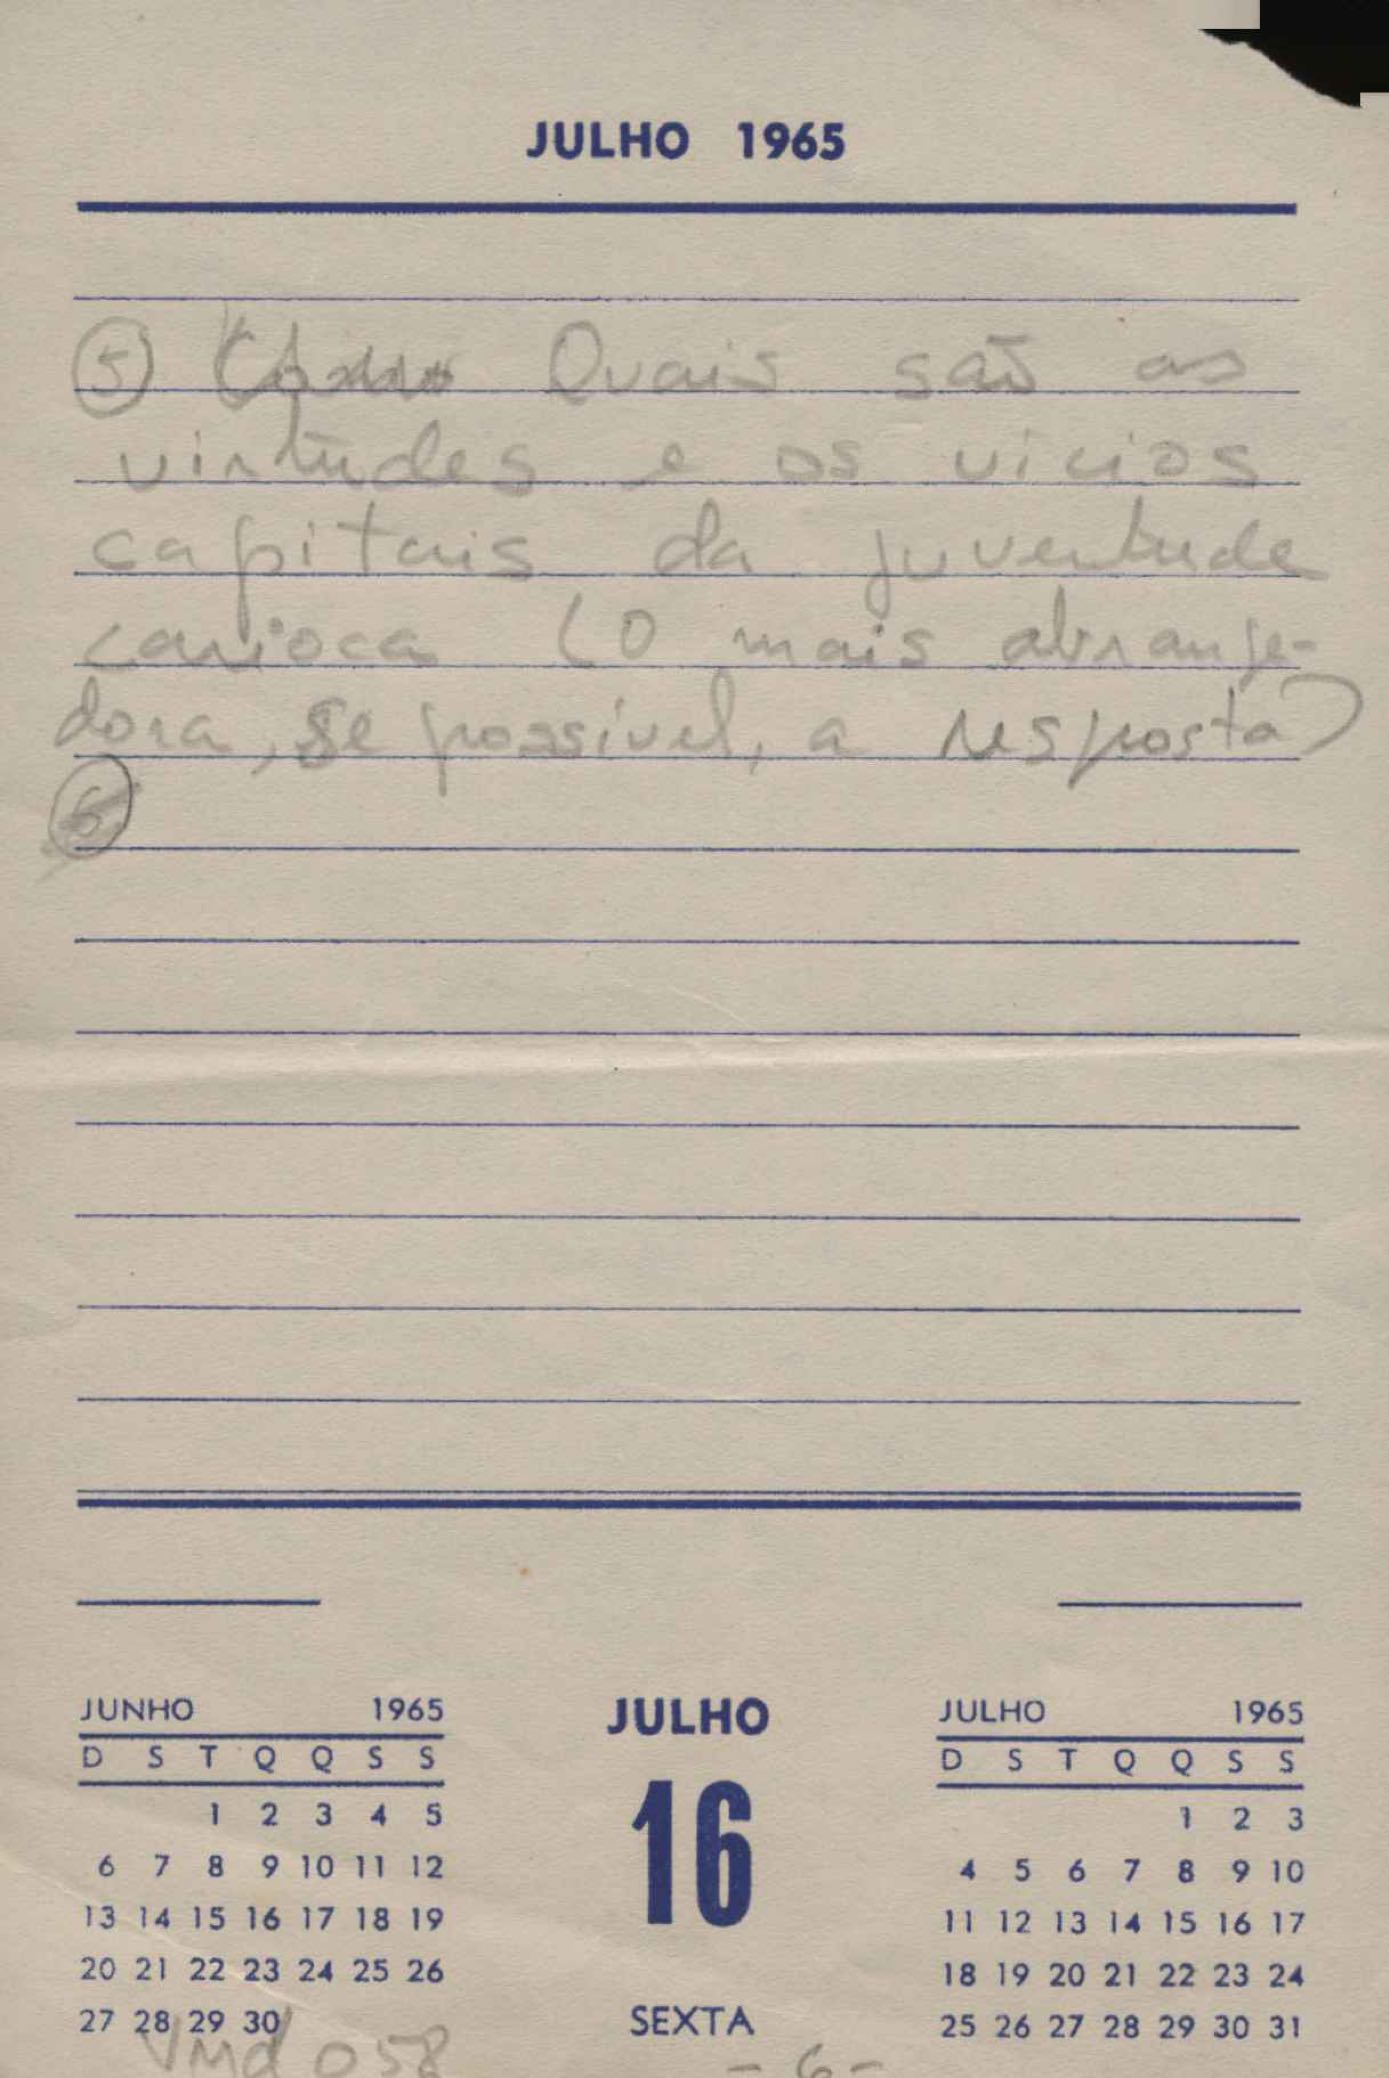 JULHO 1965
5 Quais são as
virtudes e os vicios
capitais da juventude
carioca (O mais abrange-
dora, se possível, a resposta)
6
JUNHO 1965
D S T Q Q S S
1 2 3 4 5
6 7 8 9 10 11 12
13 14 15 16 17 18 19
20 21 22 23 24 25 26
27 28 29 30
JULHO
16
SEXTA
JULHO 1965
D S T Q Q S S
1 2 3
4 5 6 7 8 9 10
11 12 13 14 15 16 17
18 19 20 21 22 23 24
25 26 27 28 29 30 31
VMd 058
- 6 -